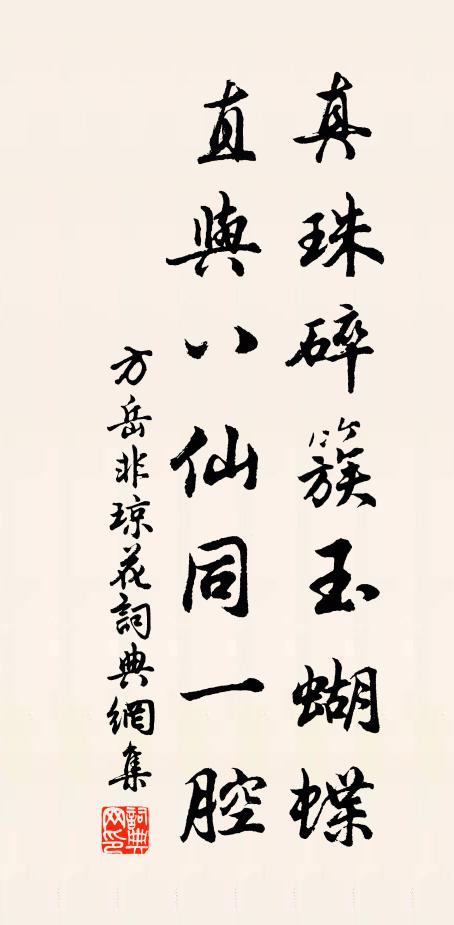 真珠碎簇玉蝴蝶
直與八仙同一腔
方岳非瓊花詞典網集
詞典
网印